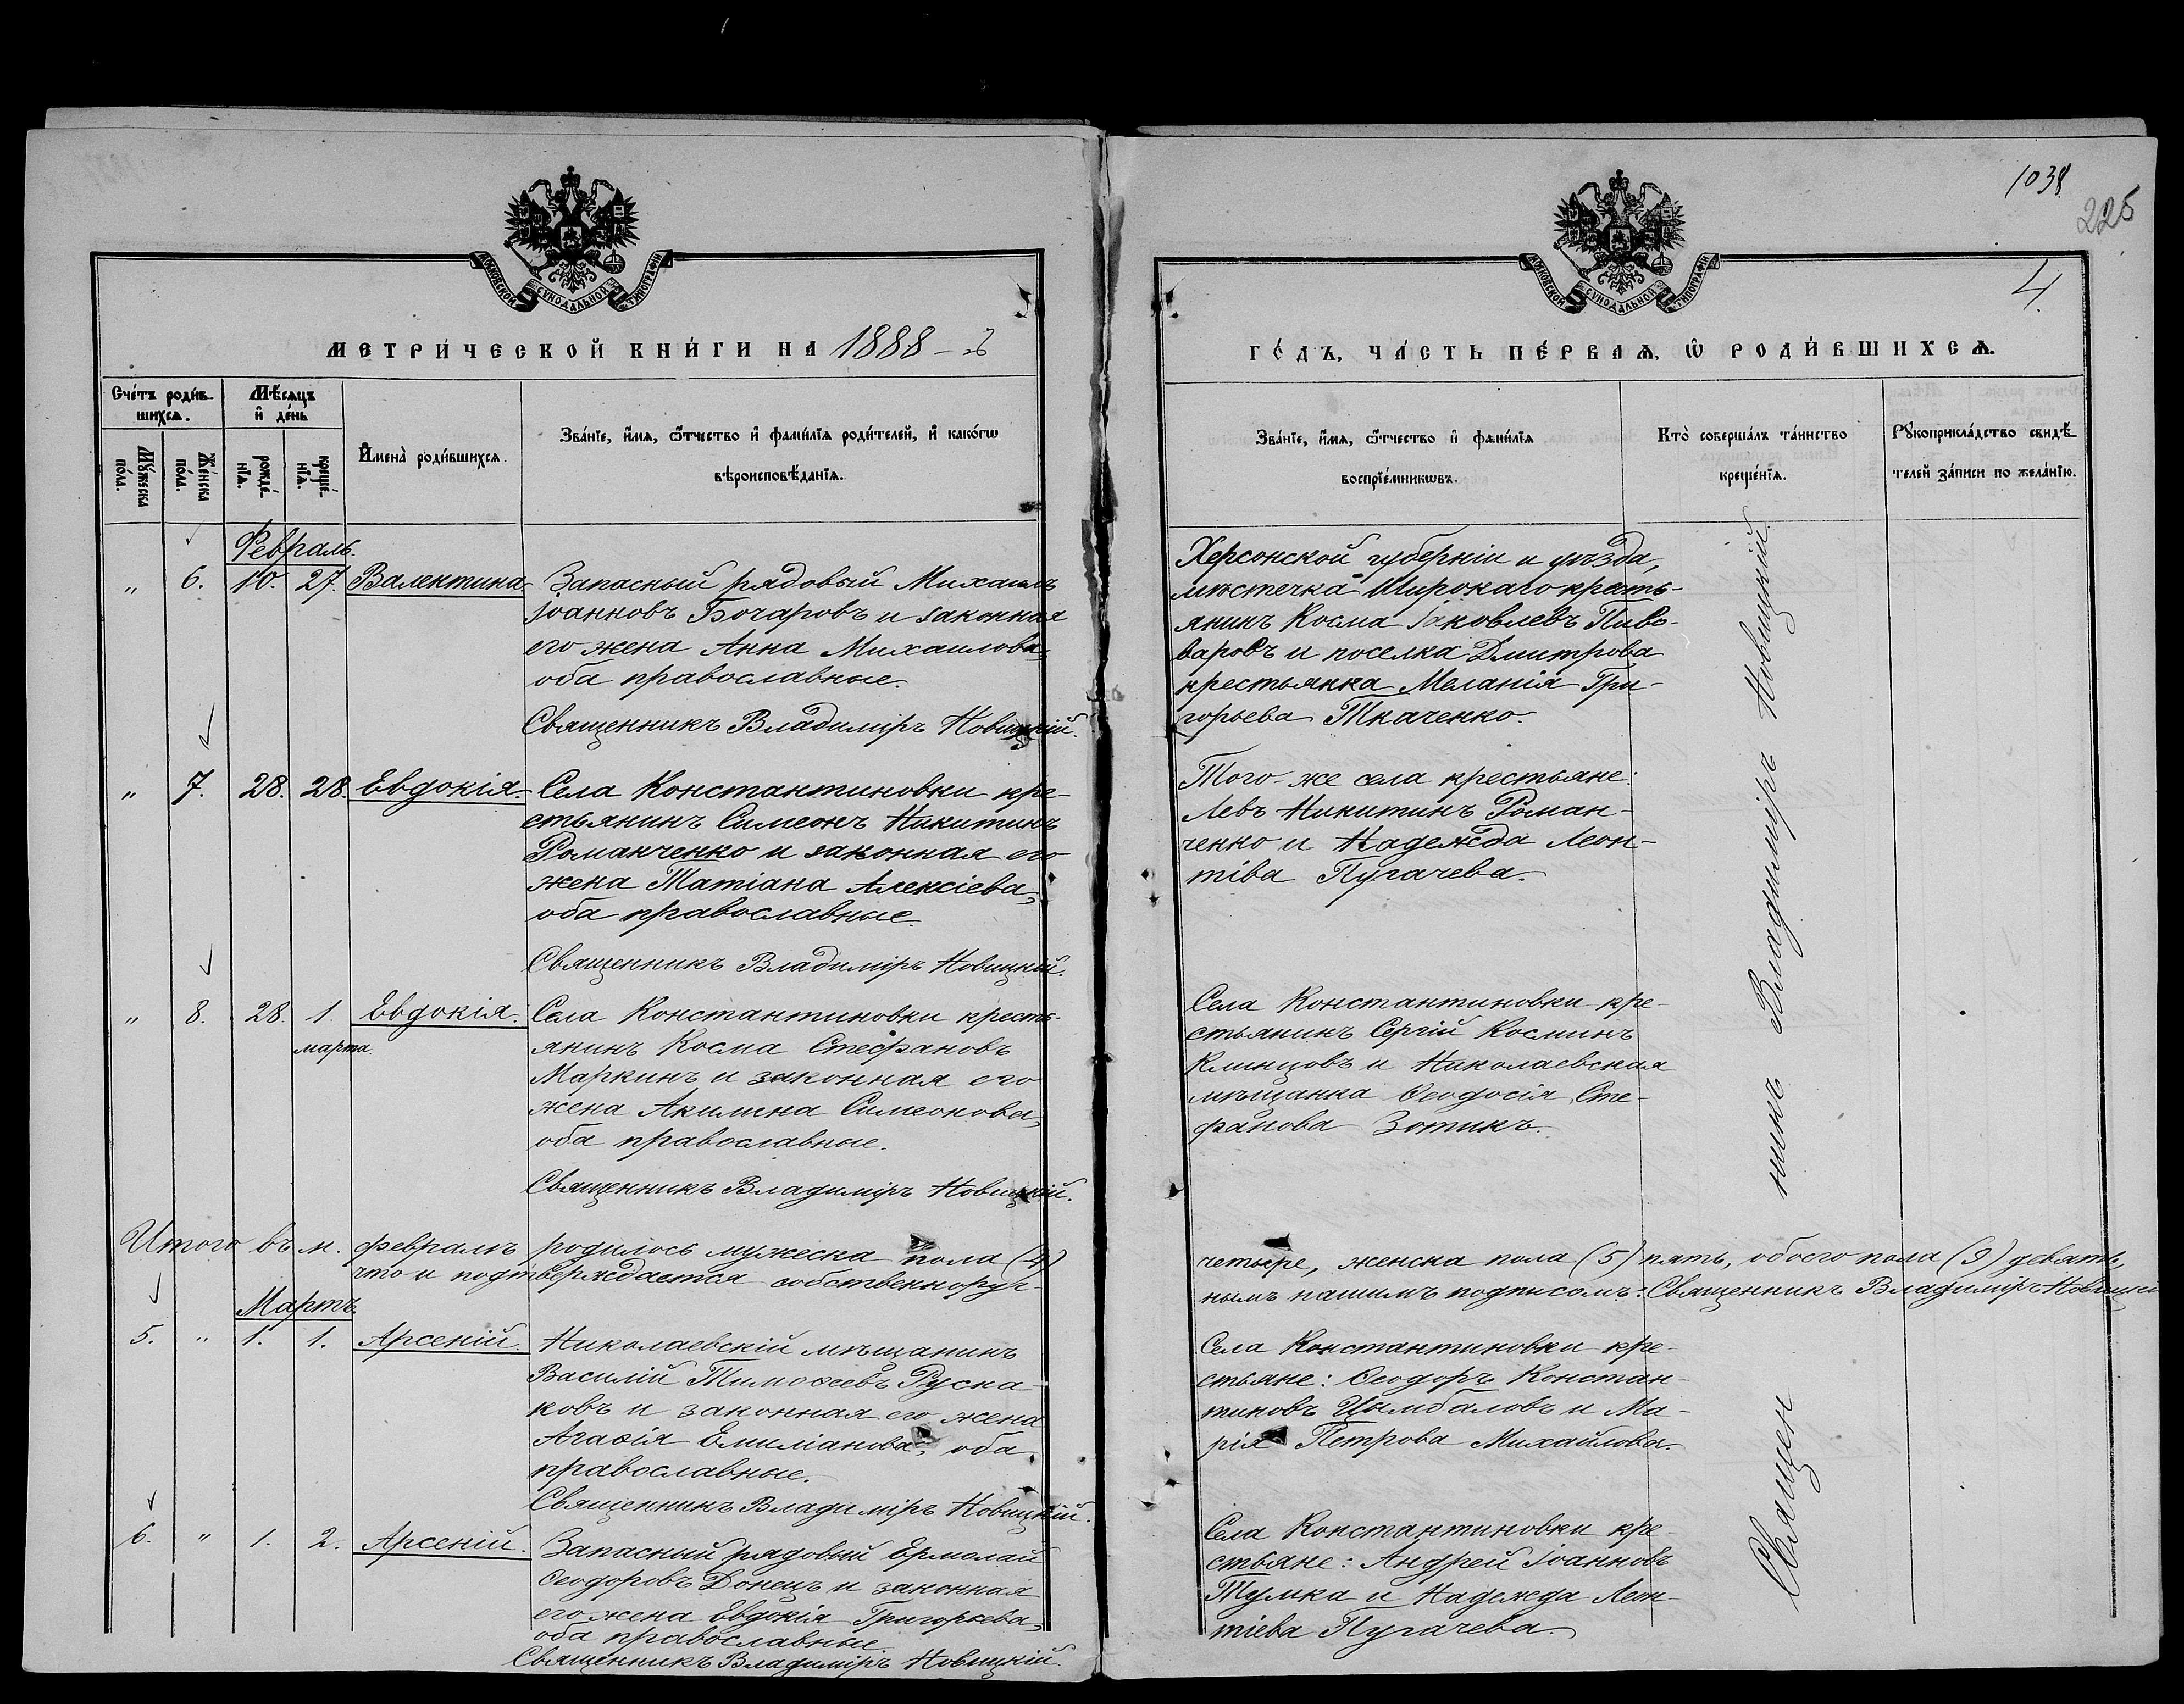 1038
225
4.
МОСКОВСКОЙ СУНОДАЛЬНОЙ ТИПОГРАФІИ
МОСКОВСКОЙ СУНОДАЛЬНОЙ ТИПОГРАФІИ
МЕТРИ́ЧЕСКОЙ КНИ́ГИ НА 1888-й
ГО́ДЪ, ЧА́СТЬ ПЕ́РВАѦ, Ѡ РОДИ́ВШИХСѦ.
Сче́тъ роди́в-
шихсѧ.
Мꙋ́жеска по́ла.
Же́нска по́ла.
Мѣ́сѧцъ и де́нь
рожде́-нїѧ.
креще́-нїѧ.
Имена̀ роди́вшихсѧ.
Зва́нїе, и́мѧ, ѻ҆́тчество и фами́лїѧ роди́телей, и како́гѡ
вѣроисповѣ́данїѧ.
Зва́нїе, и́мѧ, ѻ҆́тчество и фами́лїѧ
воспрїе́мникѡвъ.
Кто̀ соверша́лъ та́инство
креще́нїѧ.
Рꙋкоприкла́дство свидѣ́-
телей за́писи по жела́нїю.
Февраль.
" 6. 10. 27. Валентина.
Запасный рядовый Михаилъ
Іоанновъ Бочаровъ и законная
его жена Анна Михаилова,
оба православные.
Священникъ Владиміръ Новицкій.
Херсонской губерніи и уѣзда,
мѣстечка Широкаго кресть-
янинъ Косма Іаковлевъ Пиво-
варовъ и поселка Дмитрова
крестьянка Меланія Гри-
горьева Ткаченко.
" 7. 28. 28. Евдокія.
Села Константиновки кре-
стьянинъ Симеонъ Никитинъ
Романченко и законная его
жена Татіана Алексіева,
оба православные.
Священникъ Владиміръ Новицкій.
Того-же села крестьяне:
Левъ Никитинъ Роман-
ченко и Надежда Леон-
тіва Пугачева.
" 8. 28. 1. Евдокія.
марта.
Села Константиновки кресть-
янинъ Косма Стефановъ
Маркинъ и законная его
жена Акилина Симеонова,
оба православные.
Священникъ Владиміръ Новицкій.
Села Константиновки кре-
стьянинъ Сергій Косминъ
Клинцовъ и Николаевская
мѣщанка Ѳеодосія Сте-
фанова Зотикъ.
Итого въ м. февралѣ родилось мужеска пола (4)
четыре, женска пола (5) пять, обоего пола (9) девять,
что и подтверждается собственноруч-
нымъ нашимъ подписомъ: Священникъ Владиміръ Новицкій
Мартъ.
5. " 1. 1. Арсеній.
Николаевскій мѣщанинъ
Василій Тимоѳеевъ Руса-
ковъ и законная его жена
Агаѳія Емиліанова, оба
православные.
Священникъ Владиміръ Новицкій.
Села Константиновки кре-
стьяне: Ѳеодоръ Констан-
тиновъ Цымбаловъ и Ма-
рія Петрова Михайлова.
6. " 1. 2. Арсеній.
Запасный рядовый Ермолай
Ѳеодоровъ Донецъ и законная
его жена Евдокія Григорьева,
оба православные.
Священникъ Владиміръ Новицкій.
Села Константиновки кре-
стьяне: Андрей Іоанновъ
Тумка и Надежда Леон-
тіева Пугачева.
Священ
никъ Владиміръ Новицкій